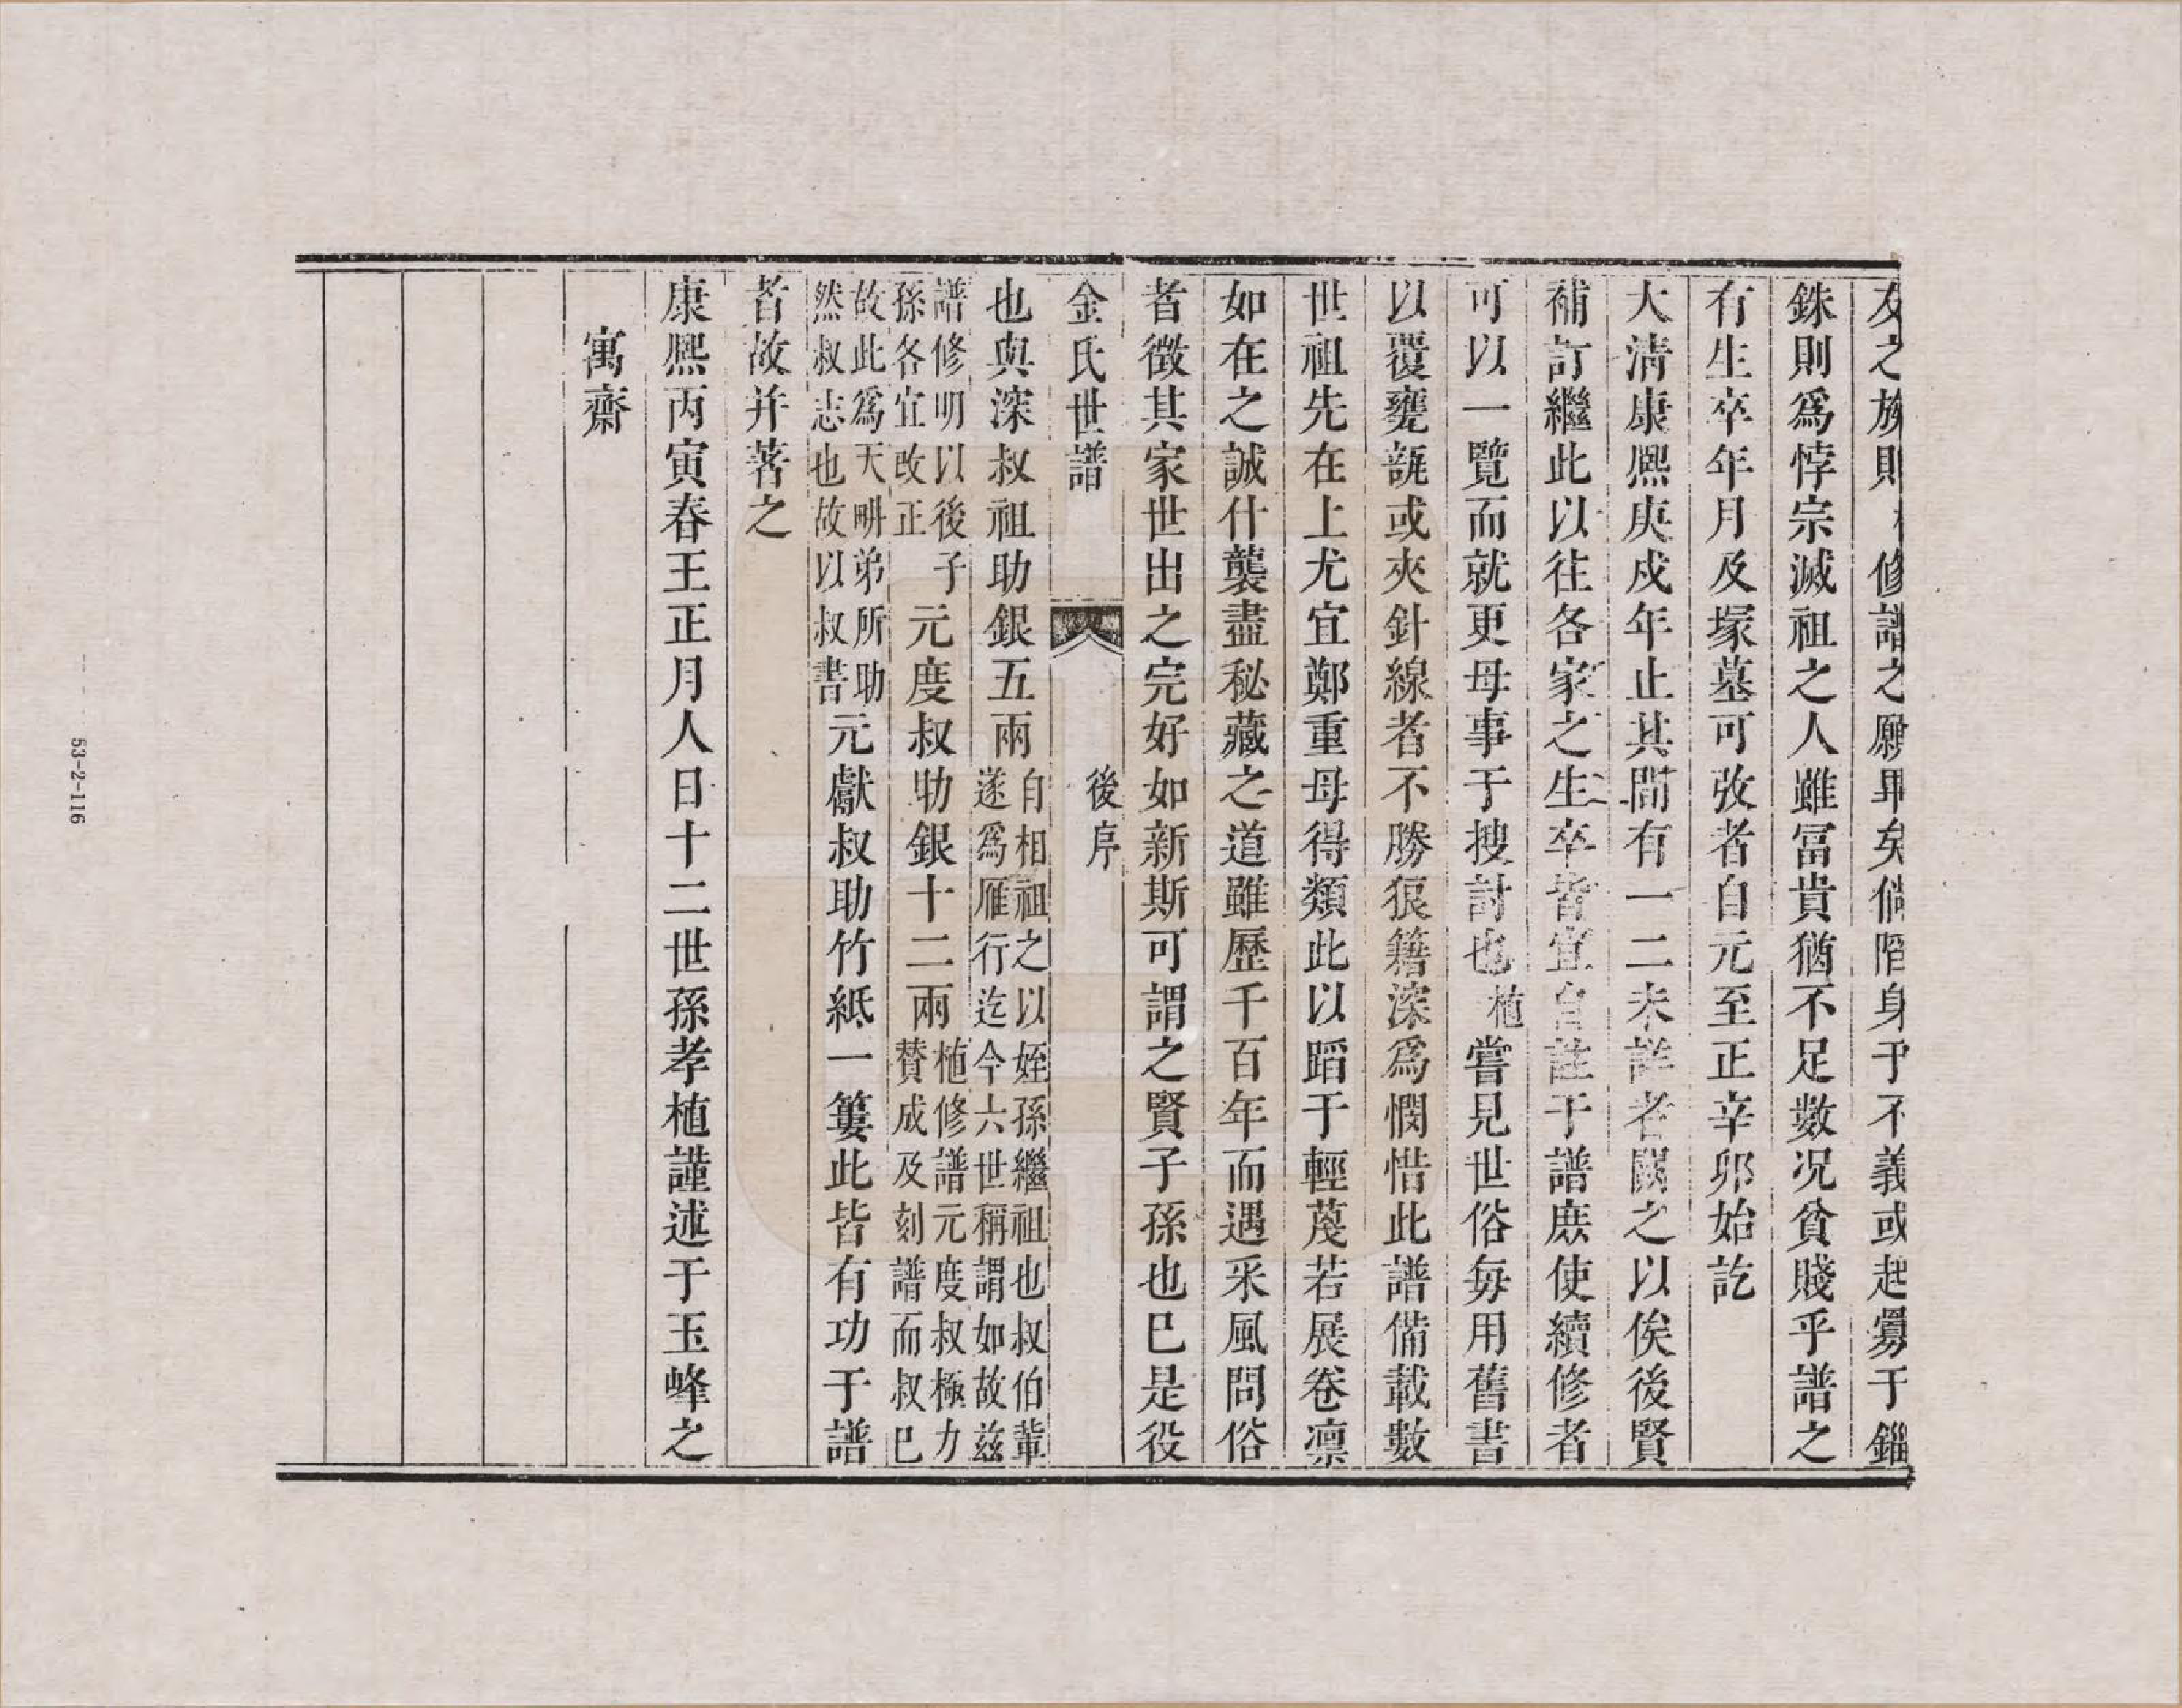 友之族則 修譜之願畢矣倘陷身于不義或起釁于錙
銖則爲悖宗滅祖之人雖冨貴猶不足數况貧賤乎譜之
有生卒年月及塚墓可攷者自元至正辛卯始訖
大淸康熈庚戍年止其間有一二未詳者闕之以俟後賢
補訂繼此以往各家之生卒皆宜自註于譜庶使續修者
可以一覽而就更毋事于搜討也植嘗見世俗每用舊書
以覆甕瓿或夾針線者不勝狼籍深爲憫惜此譜備載數
世祖先在上尤宜鄭重毋得類此以蹈于輕蔑若展卷凛
如在之誠什襲盡秘藏之道雖歷千百年而遇采風問俗
者徴其家世出之完好如新斯可謂之賢子孫也巳是役
金氏世譜 後序
也與深叔祖助銀五兩自相祖之以姪孫繼祖也叔伯輩遂爲雁行迄今六世稱謂如故兹
譜修明以後子孫各宜改正元度叔助銀十二兩植修譜元度叔極力賛成及刻譜而叔巳
故此爲天畊弟所助然叔志也故以叔書元獻叔助竹紙一簍此皆有功于譜
者故并著之
康熈丙寅春王正月人日十二世孫孝植謹述于玉峰之
寓齋
53-2-116